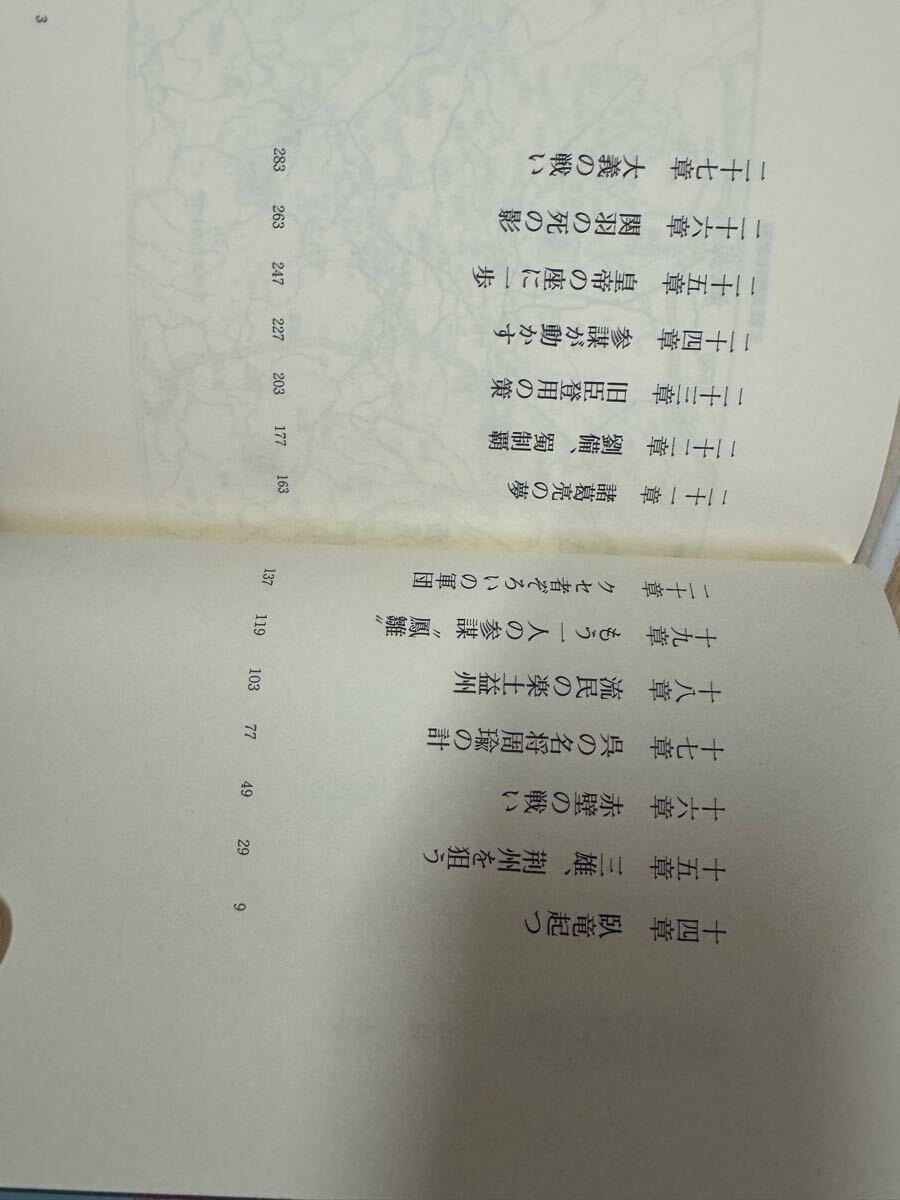 十四章 臥竜起つ 9
十五章 三雄、荆州を狙う 29
十六章 赤壁の戦い 49
十七章 呉の名将周瑜の計 77
十八章 流民の楽土益州 103
十九章 もう一人の参謀〝鳳雛〟 119
二十章 クセ者ぞろいの軍団 137
二十一章 諸葛亮の夢 163
二十二章 劉備、蜀制覇 177
二十三章 旧臣登用の策 203
二十四章 参謀が動かす 227
二十五章 皇帝の座に一歩 247
二十六章 関羽の死の影 263
二十七章 大義の戦い 283
3